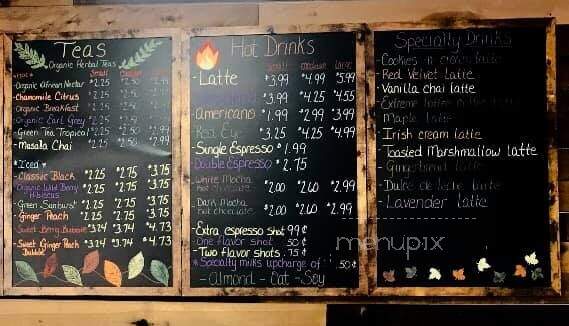 Teas
Organic Herbal Teas
*Hot* Small Large
-Organic African Nectar $2.25 $2.50 2.99
-Chamomile Citrus $2.25 $2.50 $2.99
-Organic Breakfast $2.25 $2.50
-Organic Earl Grey $2.25 $2.50
-Green Tea Tropical $2.25 $2.50 $2.99
-Masala Chai $2.25 $2.50 $2.99
*Iced*
-Classic Black $2.25 $2.75 $3.75
-Organic Wild Berry Hibiscus $2.25 $2.75 $3.75
-Green Sunburst $2.25 $2.75 $3.75
-Ginger Peach $2.25 $2.75 $3.75
-Sweet Berry Bubble $3.24 $3.74 $4.73
-Sweet Ginger Peach Bubble $3.24 $3.74 $4.73
Hot Drinks
Small Medium Large
-Latte $3.99 $4.99 $5.99
$3.99 $4.25 $4.55
-Americano $1.99 $2.99 $3.99
-Red Eye $3.25 $4.25 $4.99
-Single Espresso $1.99
-Double Espresso $2.75
-White Mocha
hot chocolate $2.00 $2.60 $2.99
-Dark Mocha
hot chocolate $2.00 $2.60 $2.99
-Extra espresso shot 99¢
-One flavor shot 50¢
-Two flavor shots .75¢
*Specialty milks upcharge of .50¢
-Almond - Oat - Soy
Specialty Drinks
-Cookies n cream latte
-Red Velvet Latte
-Vanilla chai latte
-Maple latte
-Irish cream latte
-Toasted Marshmallow latte
-Gingerbread latte
-Dulce de leche latte
-Lavender latte
menupix